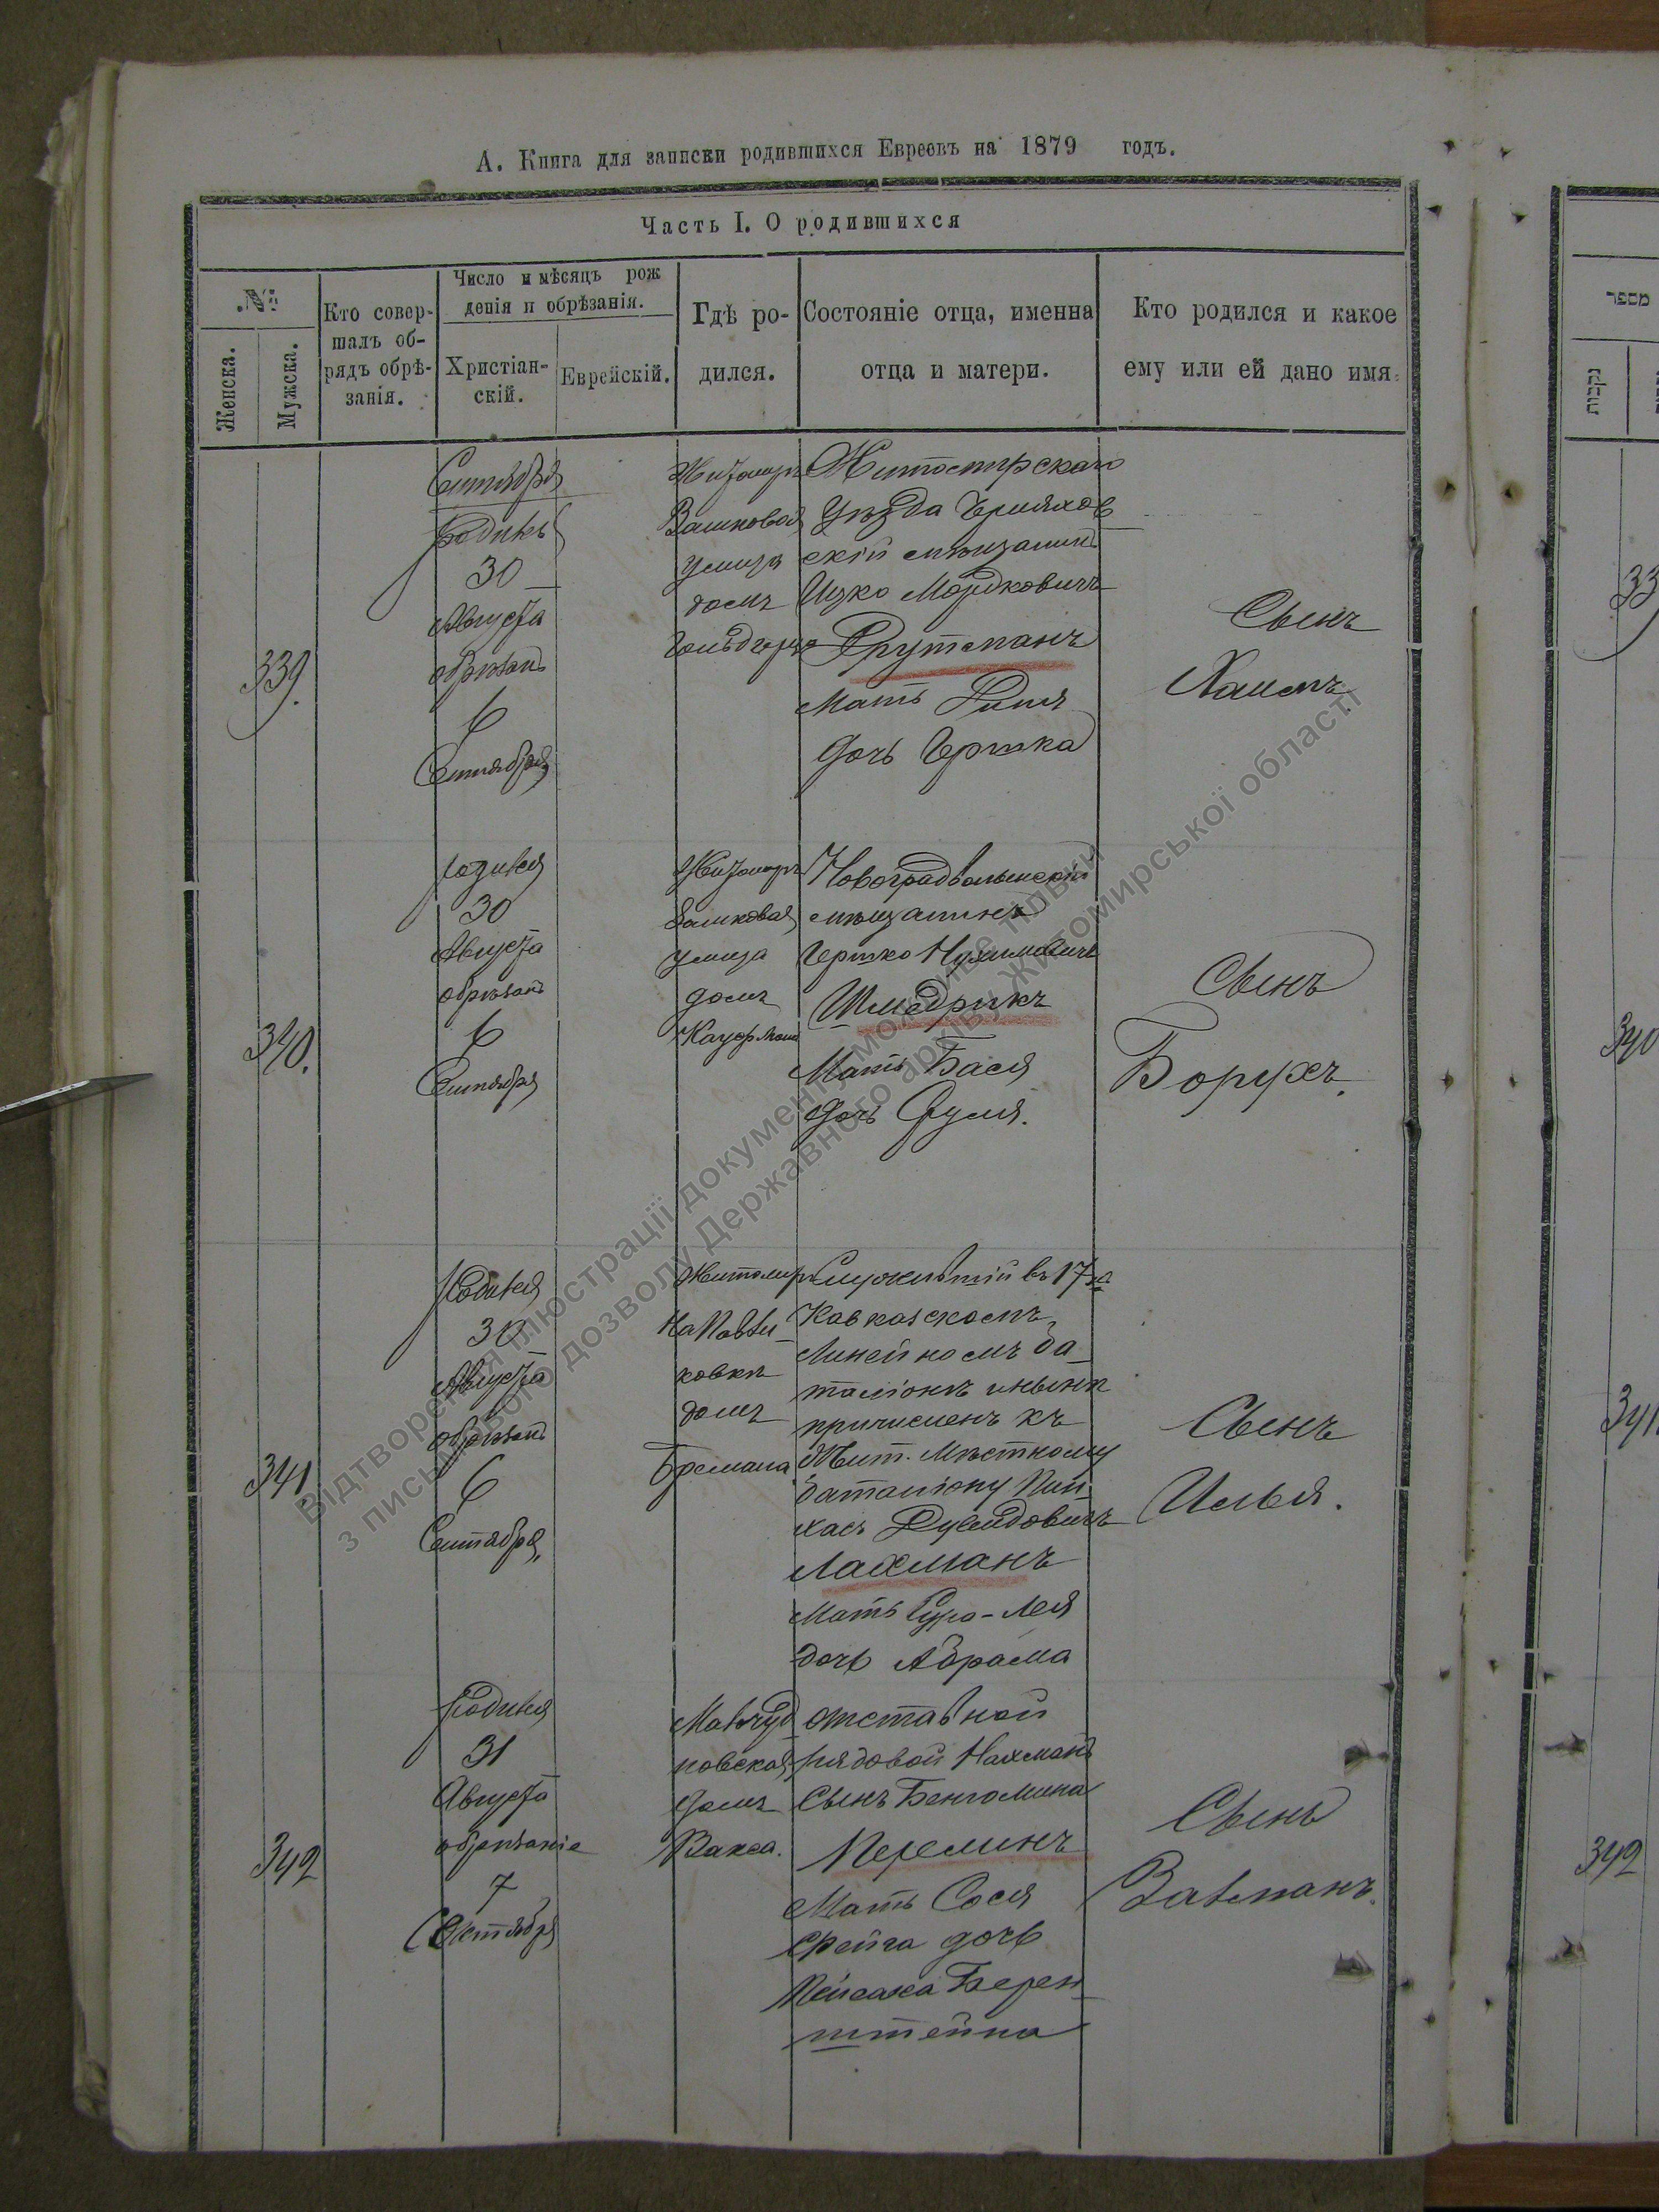 А. Книга для записки родившихся Евреевъ на 1879 годъ.
Часть I. О родившихся
№
Женска.
Мужска.
Кто совер-
шалъ об-
рядъ обрѣ-
занія.
Число и мѣсяцъ рож
денія и обрѣзанія.
Христіан-
скій.
Еврейскій.
Гдѣ ро-
дился.
Состояніе отца, именна
отца и матери.
Кто родился и какое
ему или ей дано имя.
מספר
נקבות
339.
Сентября
Родился
30
Августа
обрѣзанъ
6
Сентября
Житомиръ
улица
домъ
Житомирскаго
Уѣзда Черняхов
скій мѣщанинъ
Ицко Мордковичъ
Трутманъ
Мать
дочь Гершка
Сынъ
Хаимъ
340.
родился
30
Августа
обрѣзанъ
6
Сентября
Житомиръ
улица
домъ
Новоградволынскій
мѣщанинъ
Гершко Нухимовичъ
Шмедрикъ
Мать Бася
дочь
Сынъ
Борухъ.
341.
Родился
30
Августа
обрѣзанъ
6
Сентября,
Житомиръ
На Павли
ковкѣ
домъ
Служившій въ 17 м
Кавказскомъ
Линейномъ ба
таліонѣ и нынѣ
причисленъ къ
Жит. Мѣстному
баталіону Пин
хасъ
Лахманъ
Мать Сура-Лея
дочь Абрама
Сынъ
Илья.
342
Родился
31
Августа
обрѣзаніе
7
Сентября
домъ
Вакса.
отставной
рядовой Нахманъ
Сынъ Бенюмина
Перелинъ
Мать Сося
Фейга дочь
Пейсаха Берен
штейна
Сынъ
Завманъ.
33
340
341.
342
Відтворення ілюстрації документа можливе тільки
з письмового дозволу Державного архіву Житомирської області